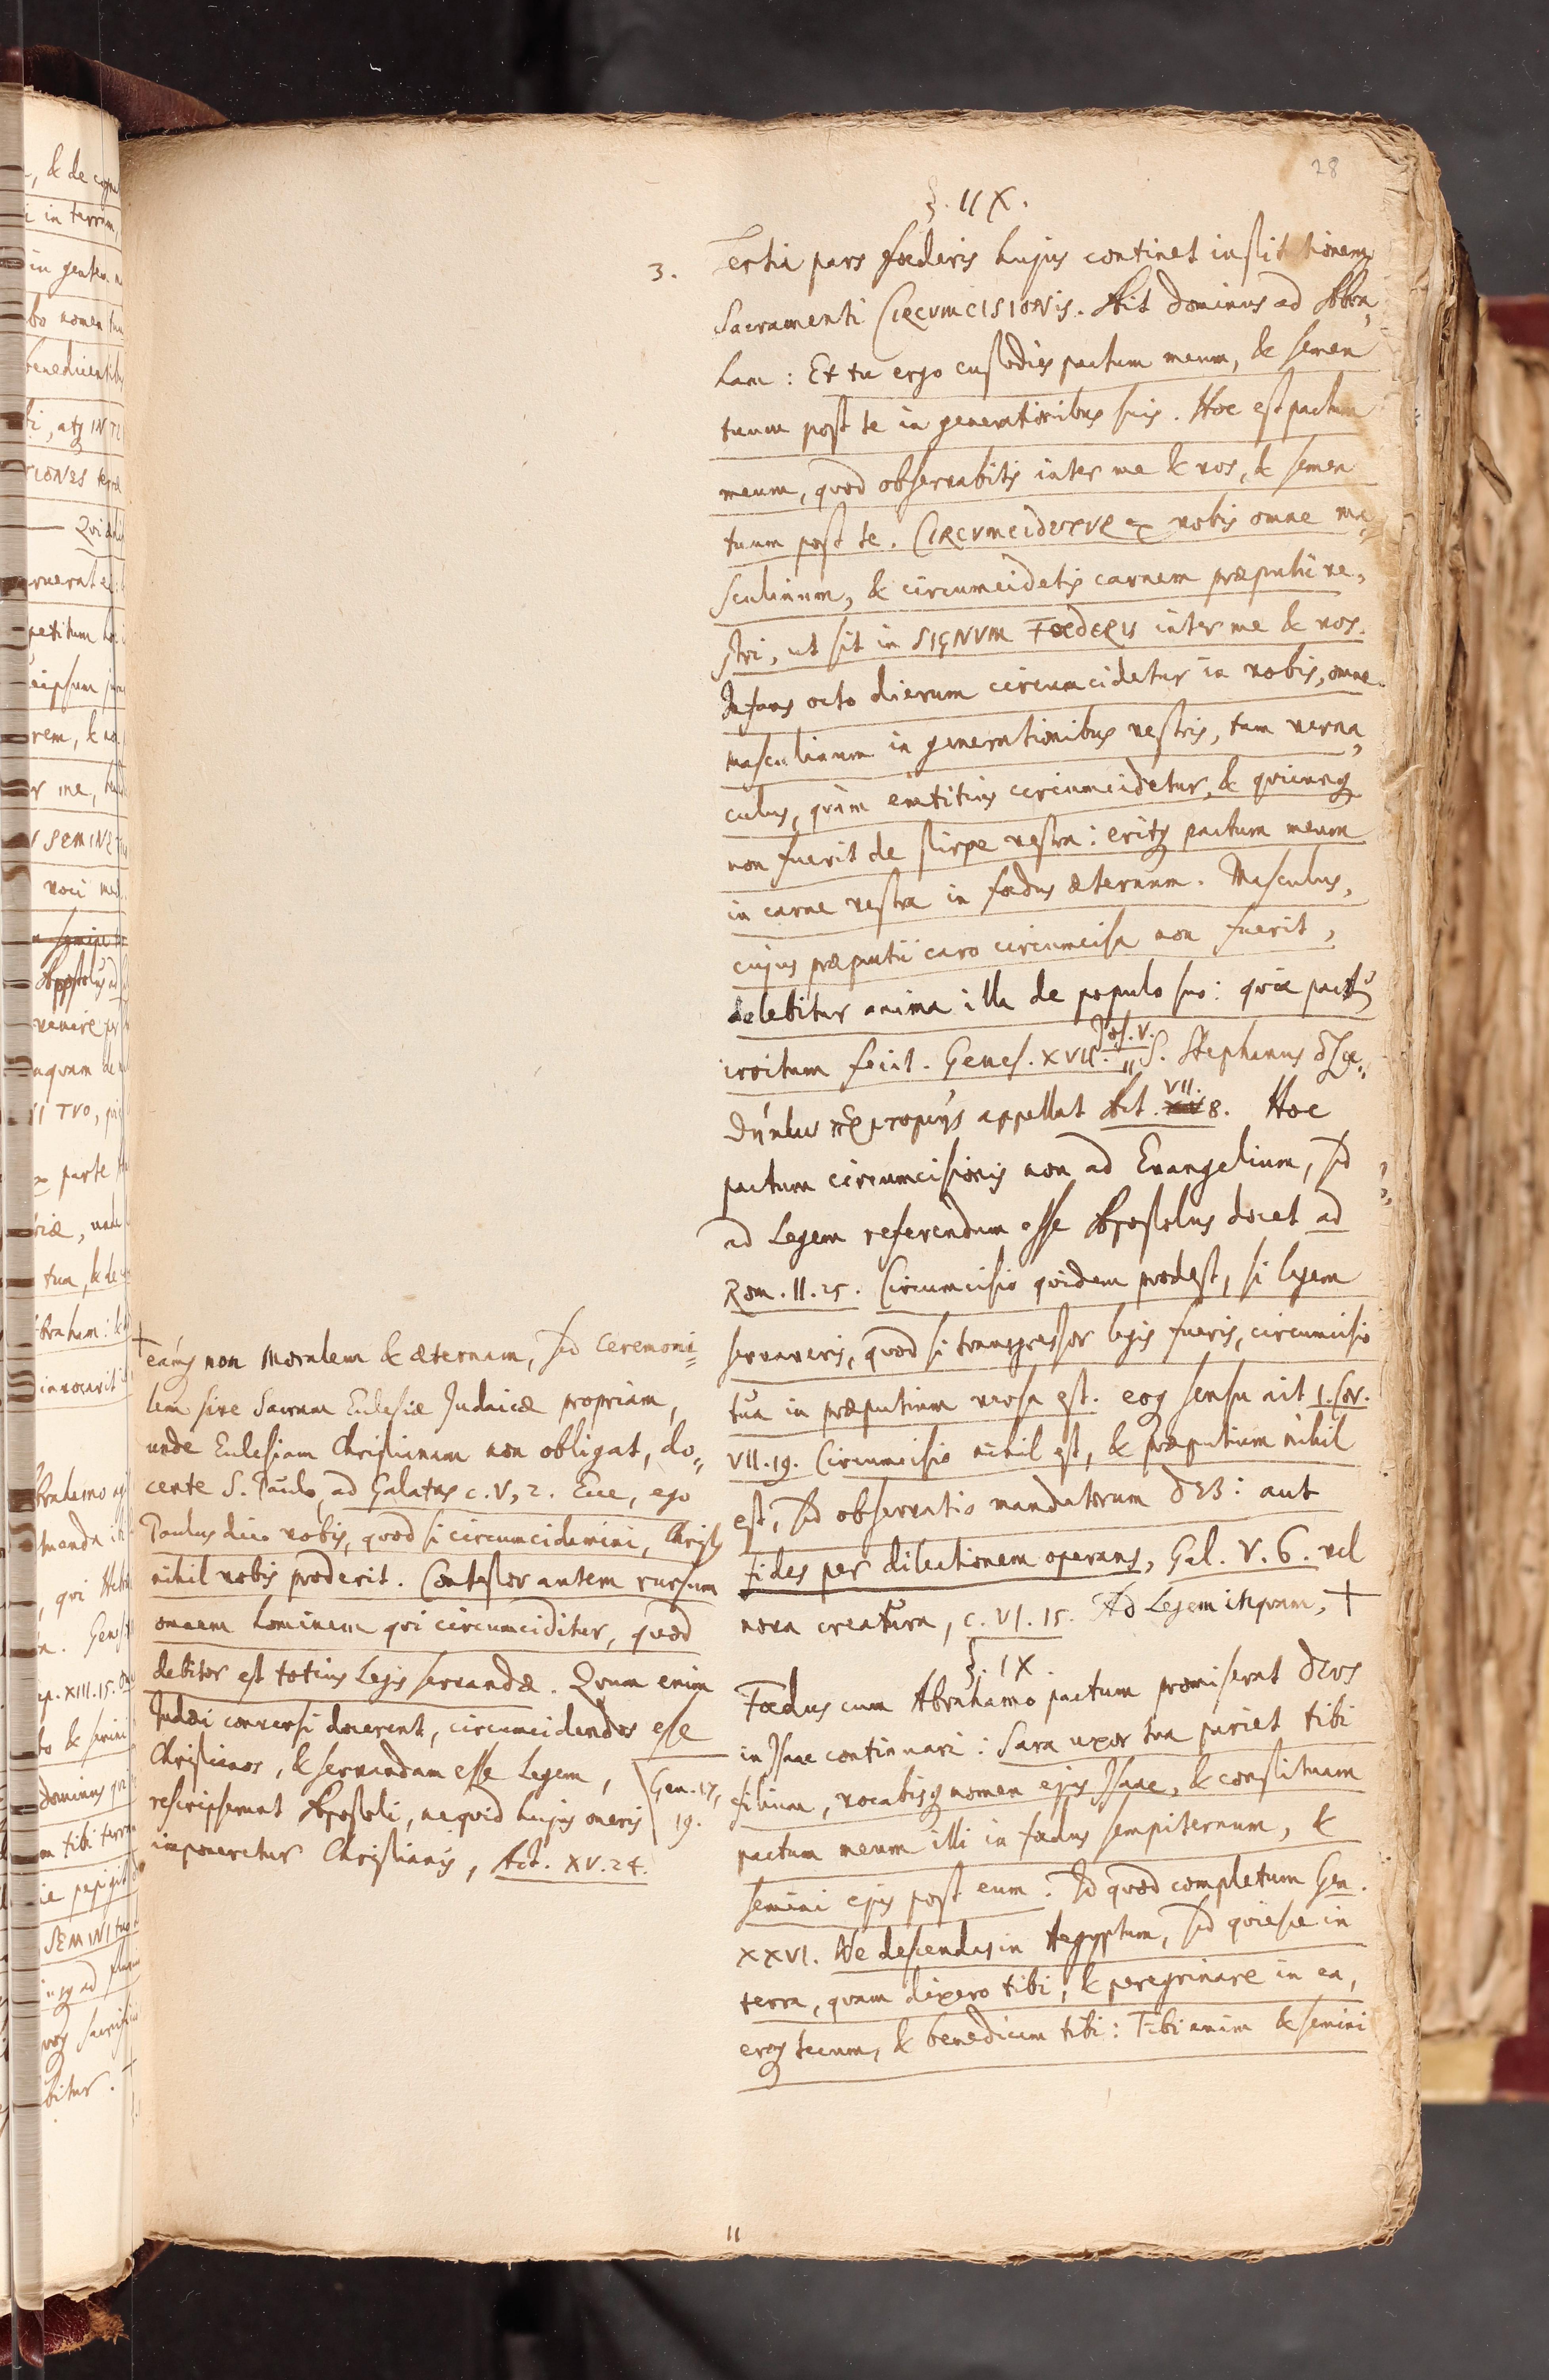 28
§. IIX.
3. Tertia pars foederis hujus continet institutionem
Sacramenti CIRCVMCISIONIS. Ait Dominus ad Abra„
ham: Et tu ergo custodies pactum meum, & semen
tuum post te in generationibus suis. Hoc est pactum
meum, quod observabitis inter me & vos, & semen
tuum post te. CIRCVMCIDETVR ex vobis omne ma„
sculinum, & circumcidetis carnem præputii ve„
stri, ut sit in SIGNVM FOEDERIS inter me & vos.
Infans octo dierum circumcidetur in vobis, omne
masculinum in generationibus vestris, tam verna„
culus, quàm emtitius circumcidetur, & quicunq
non fuerit de stirpe vestra: eritq pactum meum
in carne vestra in foedus æternum. Masculus,
cujus præputii caro circumcisa non fuerit,
delebitur anima illa de populo suo: quia pactū
irritum fecit. Genes. XVII. Jos. V. S. Stephanus διαθ„
ήκην περιτομῆς appellat Act. VII. 8. Hoc
pactum circumcisionis non ad Evangelium, sed
ad Legem referendum esse Apostolus docet ad
Rom. II. 25. Circumcisio quidem prodest, si legem
servaveris, quod si transgressor legis fueris, circumcisio
tua in præputium versa est. eoq sensu ait I. Cor.
VII. 19. Circumcisio nihil est, & præputium nihil
est, sed observatio mandatorum DEI: aut
fides per dilectionem operans, Gal. V. 6. vel
nova creatura, c. VI. 15. Ad Legem inquam, †
† eamq non Moralem & æternam, sed Ceremoni„
lem sive Sacram Ecclesiæ Judaicæ propriam,
unde Ecclesiam Christianam non obligat, do„
cente S. Paulo, ad Galatas c. V, 2. Ecce, ego
Paulus dico vobis, quod si circumcidamini, Christq
nihil vobis proderit. Contestor autem rursum
omnem hominem qui circumciditur, quod
debitor est totius Legis servandæ. Quum enim
Judæi conversi docerent, circumcidendos esse
Christianos, & servandam esse Legem,
rescripserunt Apostoli, nequid hujus oneris
imponeretur Christianis, Act. XV. 24.
§. IX.
Foedus cum Abrahamo pactum promiserat DEVS
in Isaac continuari: Sara uxor tua pariet tibi
Gen. 17, 19.
filium, vocabisq nomen ejus Isaac, & constituam
pactum meum illi in foedus sempiternum, &
semini ejus post eum. Id quod completum Gen.
XXVI. Ne descendas in Aegyptum, sed quiesce in
terra, quam dixero tibi, & peregrinare in ea,
eroq tecum, & benedicam tibi: Tibi enim & semini
11